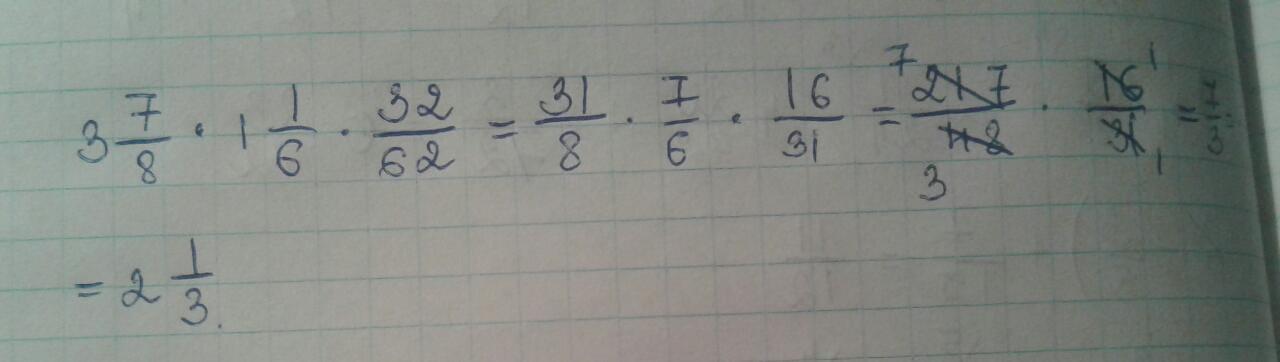 3 7/8 · 1 1/6 · 32/62 = 31/8 · 7/6 · 16/31 = 7 217/48 3 · 16 1/31 1 = 7/3
= 2 1/3.